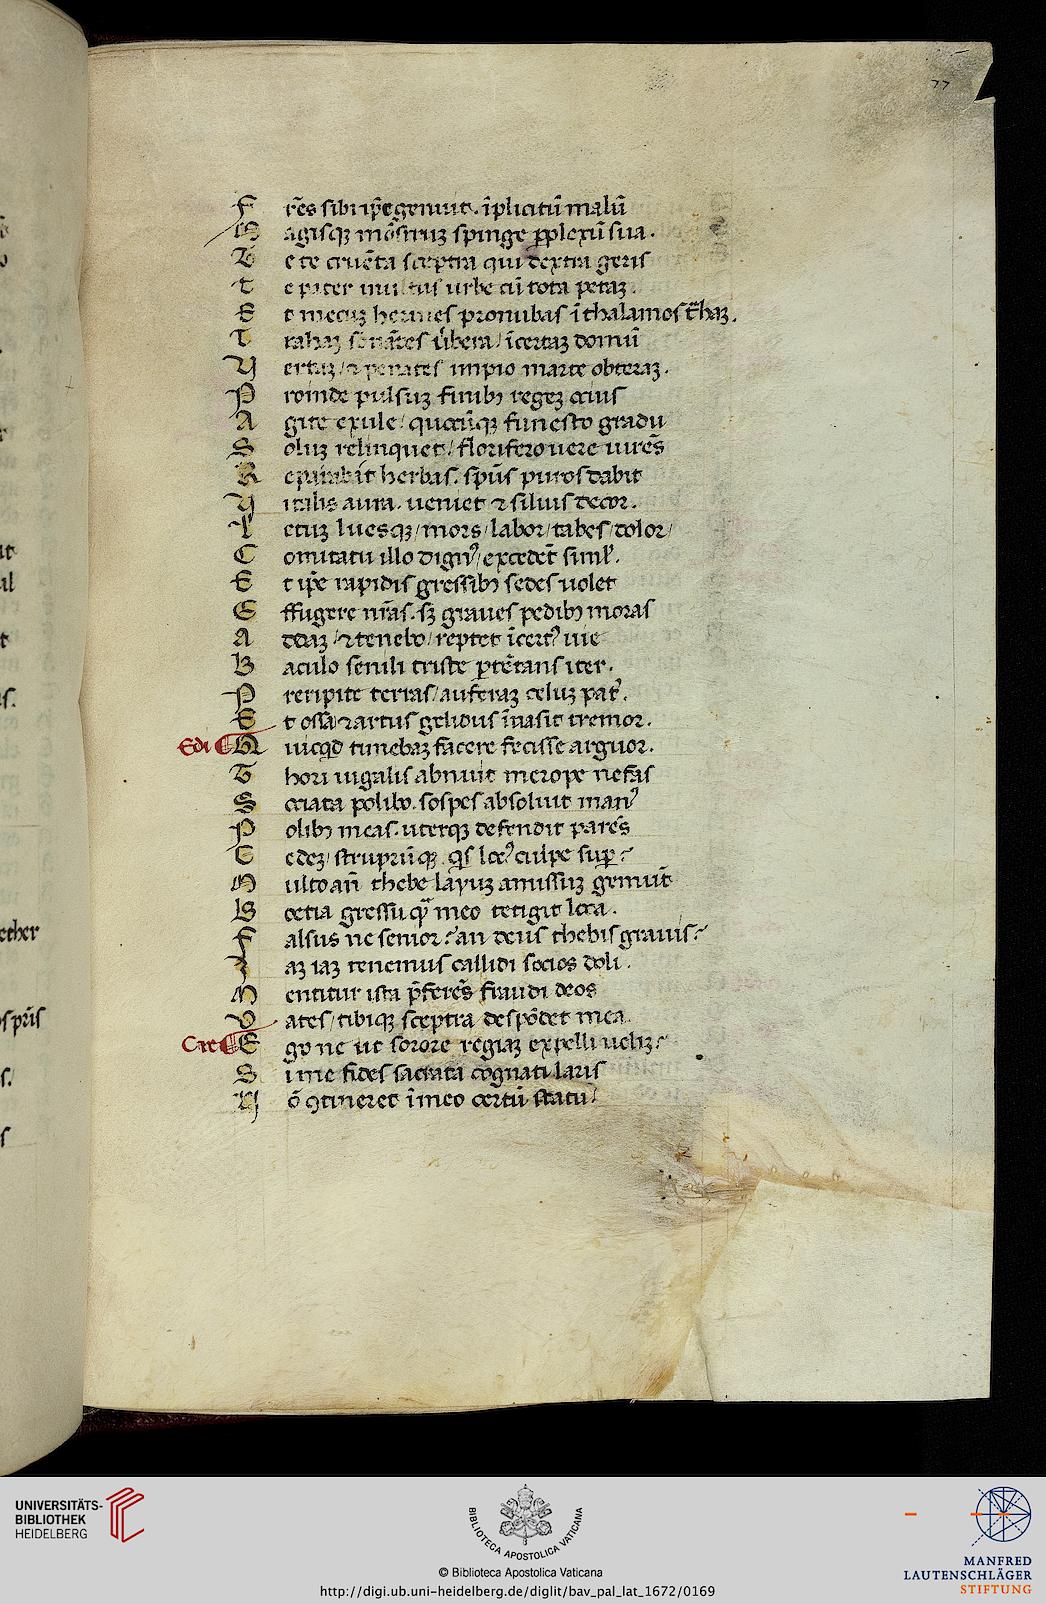 77
F rēs sibi ip̄e genuit. īplicitū malū
M agisqꝫ mōstruꝫ spinge ꝑplexū sua.
T e te cruēta sceptra qui dextra geris
T e pater inultus urbe cū tota petaꝫ
E t mecuꝫ herines pronubas ī thalamos t̄haꝫ.
T rahaꝫ sonātes ūbera / īcertaꝫ domū
V ertaꝫ / ⁊ penates impio marte obteraꝫ.
P roinde pulsuꝫ finibꝫ regeꝫ ocius
A gite exule / quocūqꝫ funesto gradu
S oluꝫ relinquet / florifero uere uirēs
R eparabit herbas. sp̄us puros dabit
V italis aura. ueniet ⁊ siluis decor.
L etuꝫ luesqꝫ / mors / labor / tabes / dolor /
C omitatu illo dignꝰ / excedet siml̓.
E t ip̄e rapidis gressibꝫ sedes uolet
E ffugere nr̄as. sꝫ graues pedibꝫ moras
A ddaꝫ / ⁊ tenebo / reptet īcertꝰ uie
B aculo senili triste p̄tētans iter.
P reripite terras / auferaꝫ celuꝫ pat̓.
E t ossa ⁊ artus gelidus īuasit tremor.
Edi Q uicqd̄ timebaꝫ facere fecisse arguor.
T hori iugalis abnuit merope nefas
S ociata polibo. sospes absoluit manꝰ
P olibꝫ meas. uterqꝫ defendit parēs
C edeꝫ / struprūqꝫ. qͥs locꝰ culpe suꝑ?
M ulto an̄ thebe layuꝫ amissuꝫ gemūt
B oetia gressu qͣm meo tetigit loca.
F alsus ne senior? an deus thebis grauis?
I aꝫ iaꝫ tenemus callidi socios doli.
M entitur ista p̄ferēs fraudi deos
V ates / tibiqꝫ sceptra despōdet mea
Cre E go ne ut sorore regiaꝫ expelli ueliꝫ?
S i me fides sacrata cognati laris
N ō ꝯtineret ī meo certū statu /
ether
UNIVERSITÄTS-
BIBLIOTHEK
HEIDELBERG
BIBLIOTECA APOSTOLICA VATICANA
© Biblioteca Apostolica Vaticana
http://digi.ub.uni-heidelberg.de/diglit/bav_pal_lat_1672/0169
MANFRED
LAUTENSCHLÄGER
STIFTUNG